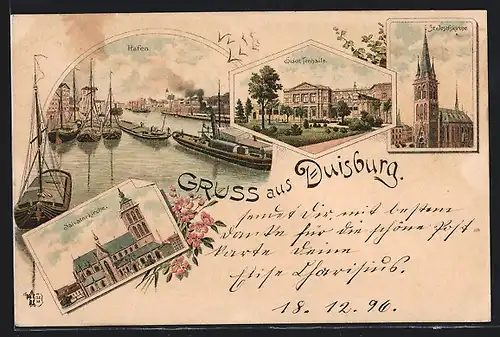 Hafen.
Städt. Tonhalle.
St. Josefskirche.
GRUSS aus Duisburg.
Salvatorkirche.
sendet Dir, mit bestem
Danke für die schöne Post
karte deine
Elise Charisius.
18.12.96.